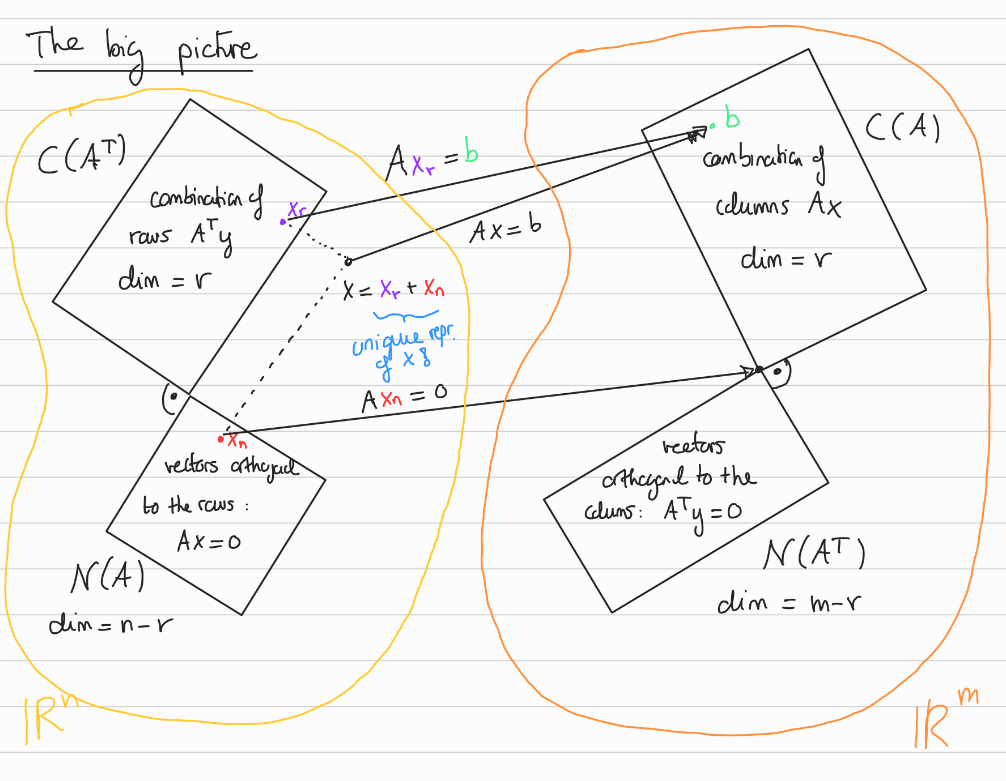 The big picture
C(Aᵀ)
combination of
rows Aᵀy
dim = r
xᵣ
Axᵣ = b
Ax = b
x = xᵣ + xₙ
unique repr.
of x!
Axₙ = 0
xₙ
vectors orthogonal
to the rows :
Ax=0
N(A)
dim = n-r
ℝⁿ
b
C(A)
combination of
columns Ax
dim = r
vectors
orthogonal to the
colums: Aᵀy=0
N(Aᵀ)
dim = m-r
ℝᵐ